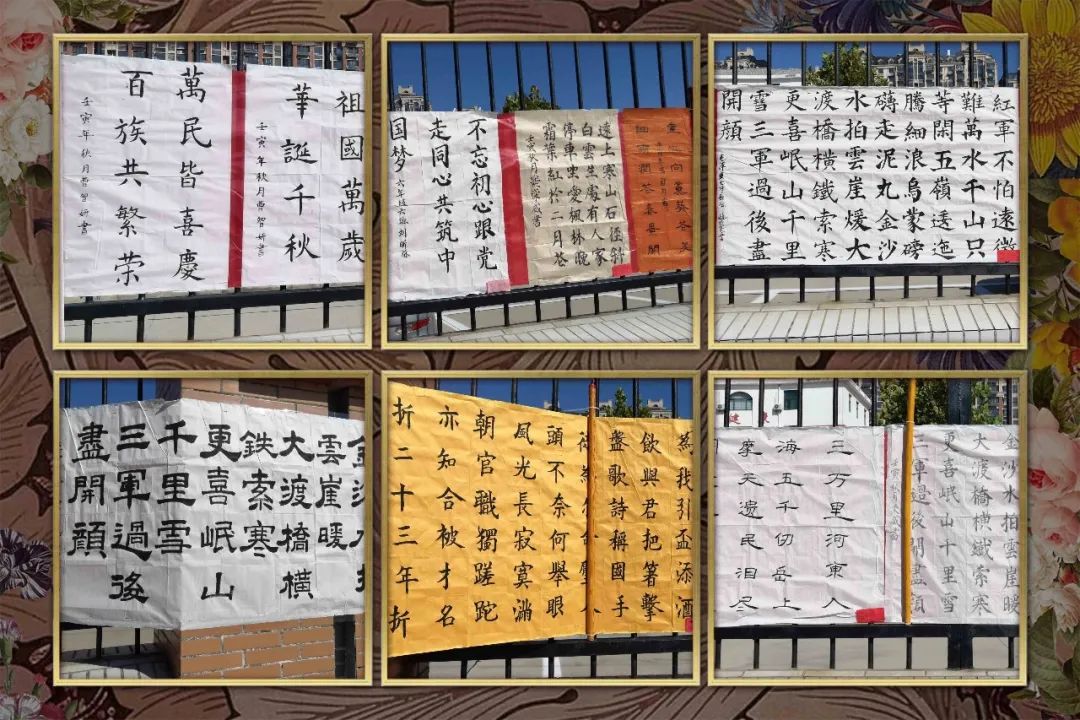 祖國萬歲
華誕千秋
壬寅年秋月曹智妍書
萬民皆喜慶
百族共繁荣
壬寅年秋月曹智妍書
遠上寒山石徑斜
白雲生處有人家
停車坐愛楓林晚
霜葉紅於二月花
不忘初心跟党
走同心共筑中
国梦
紅軍不怕遠徵
難萬水千山只
等閑五嶺逶迤
騰細浪烏蒙磅
礴走泥丸金沙
水拍雲崖煖大
渡橋橫鐵索寒
更喜岷山千里
雪三軍過後盡
開顏
雲崖暖
大渡橋橫
鉄索寒
更喜岷山
千里雪
三軍過後
盡開顏
為我引盃添酒
飲與君把箸擊
盞歌詩稱國手
頭不奈何舉眼
風光長寂寞滿
朝官職獨蹉跎
亦知合被才名
折二十三年折
金沙水拍雲崖暖
大渡橋橫鐵索寒
更喜岷山千里雪
軍過後開盡顏
三万里河東入
海五千仞岳上
摩天遗民泪尽